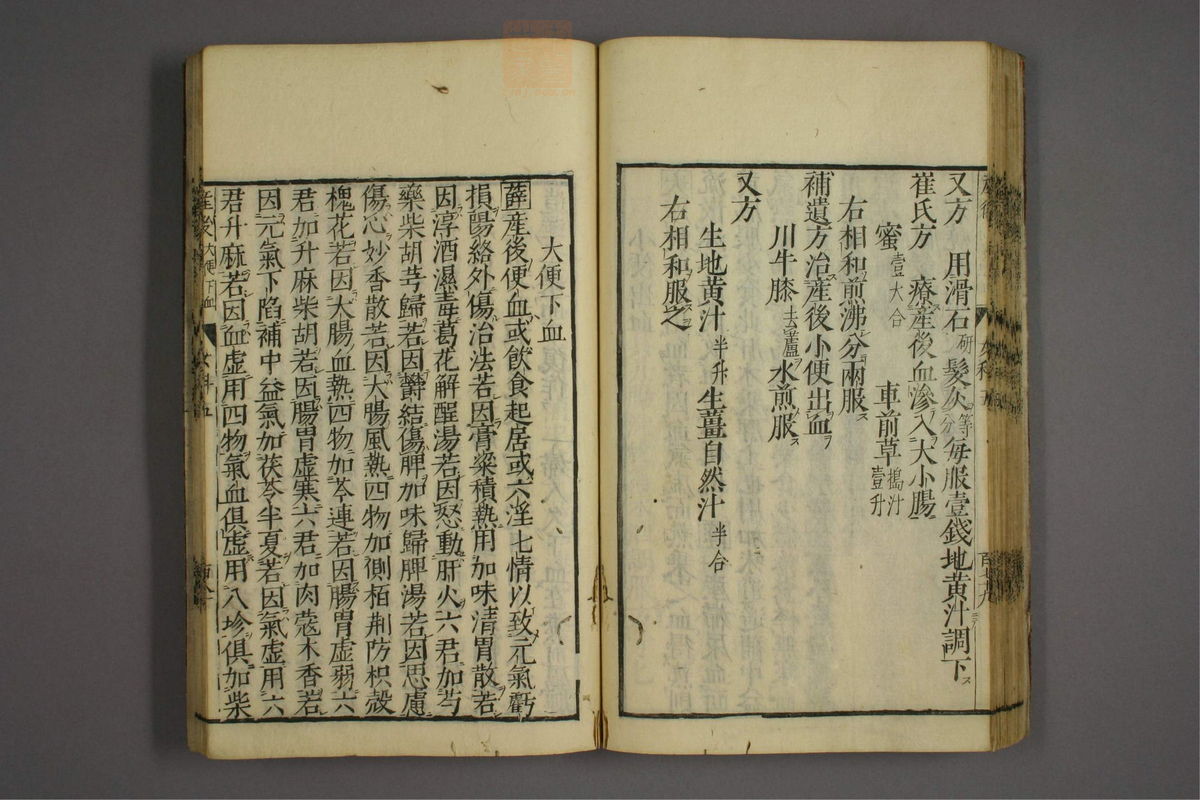 又方 用滑石研髮灰等分每服壹錢地黄汁調下
崔氏方 療産後血滲入大小腸
蜜壹大合 車前草搗汁壹升
右相和煎沸分兩服
補遺方治産後小便出血
川牛膝去蘆水煎服
又方
生地黄汁半升 生薑自然汁半合
右相和服之
大便下血
薛産後便血或飲食起居或六淫七情以致元氣虧
損陽絡外傷治法若因膏粱積熱用加味清胃散若
因淳酒濕毒葛花解酲湯若因怒動肝火六君加芍
藥柴胡芎歸若因鬱結傷脾加味歸脾湯若因思慮
傷心妙香散若因大腸風熱四物加側栢荆防枳殻
槐花若因大腸血熱四物加芩連若因腸胃虚弱六
君加升麻柴胡若因腸胃虚寒六君加肉蔻木香若
因元氣下陷補中益氣加茯苓半夏若因氣虚用六
君升麻若因血虚用四物氣血俱虚用八珍俱加柴
産後大便下血 女科五